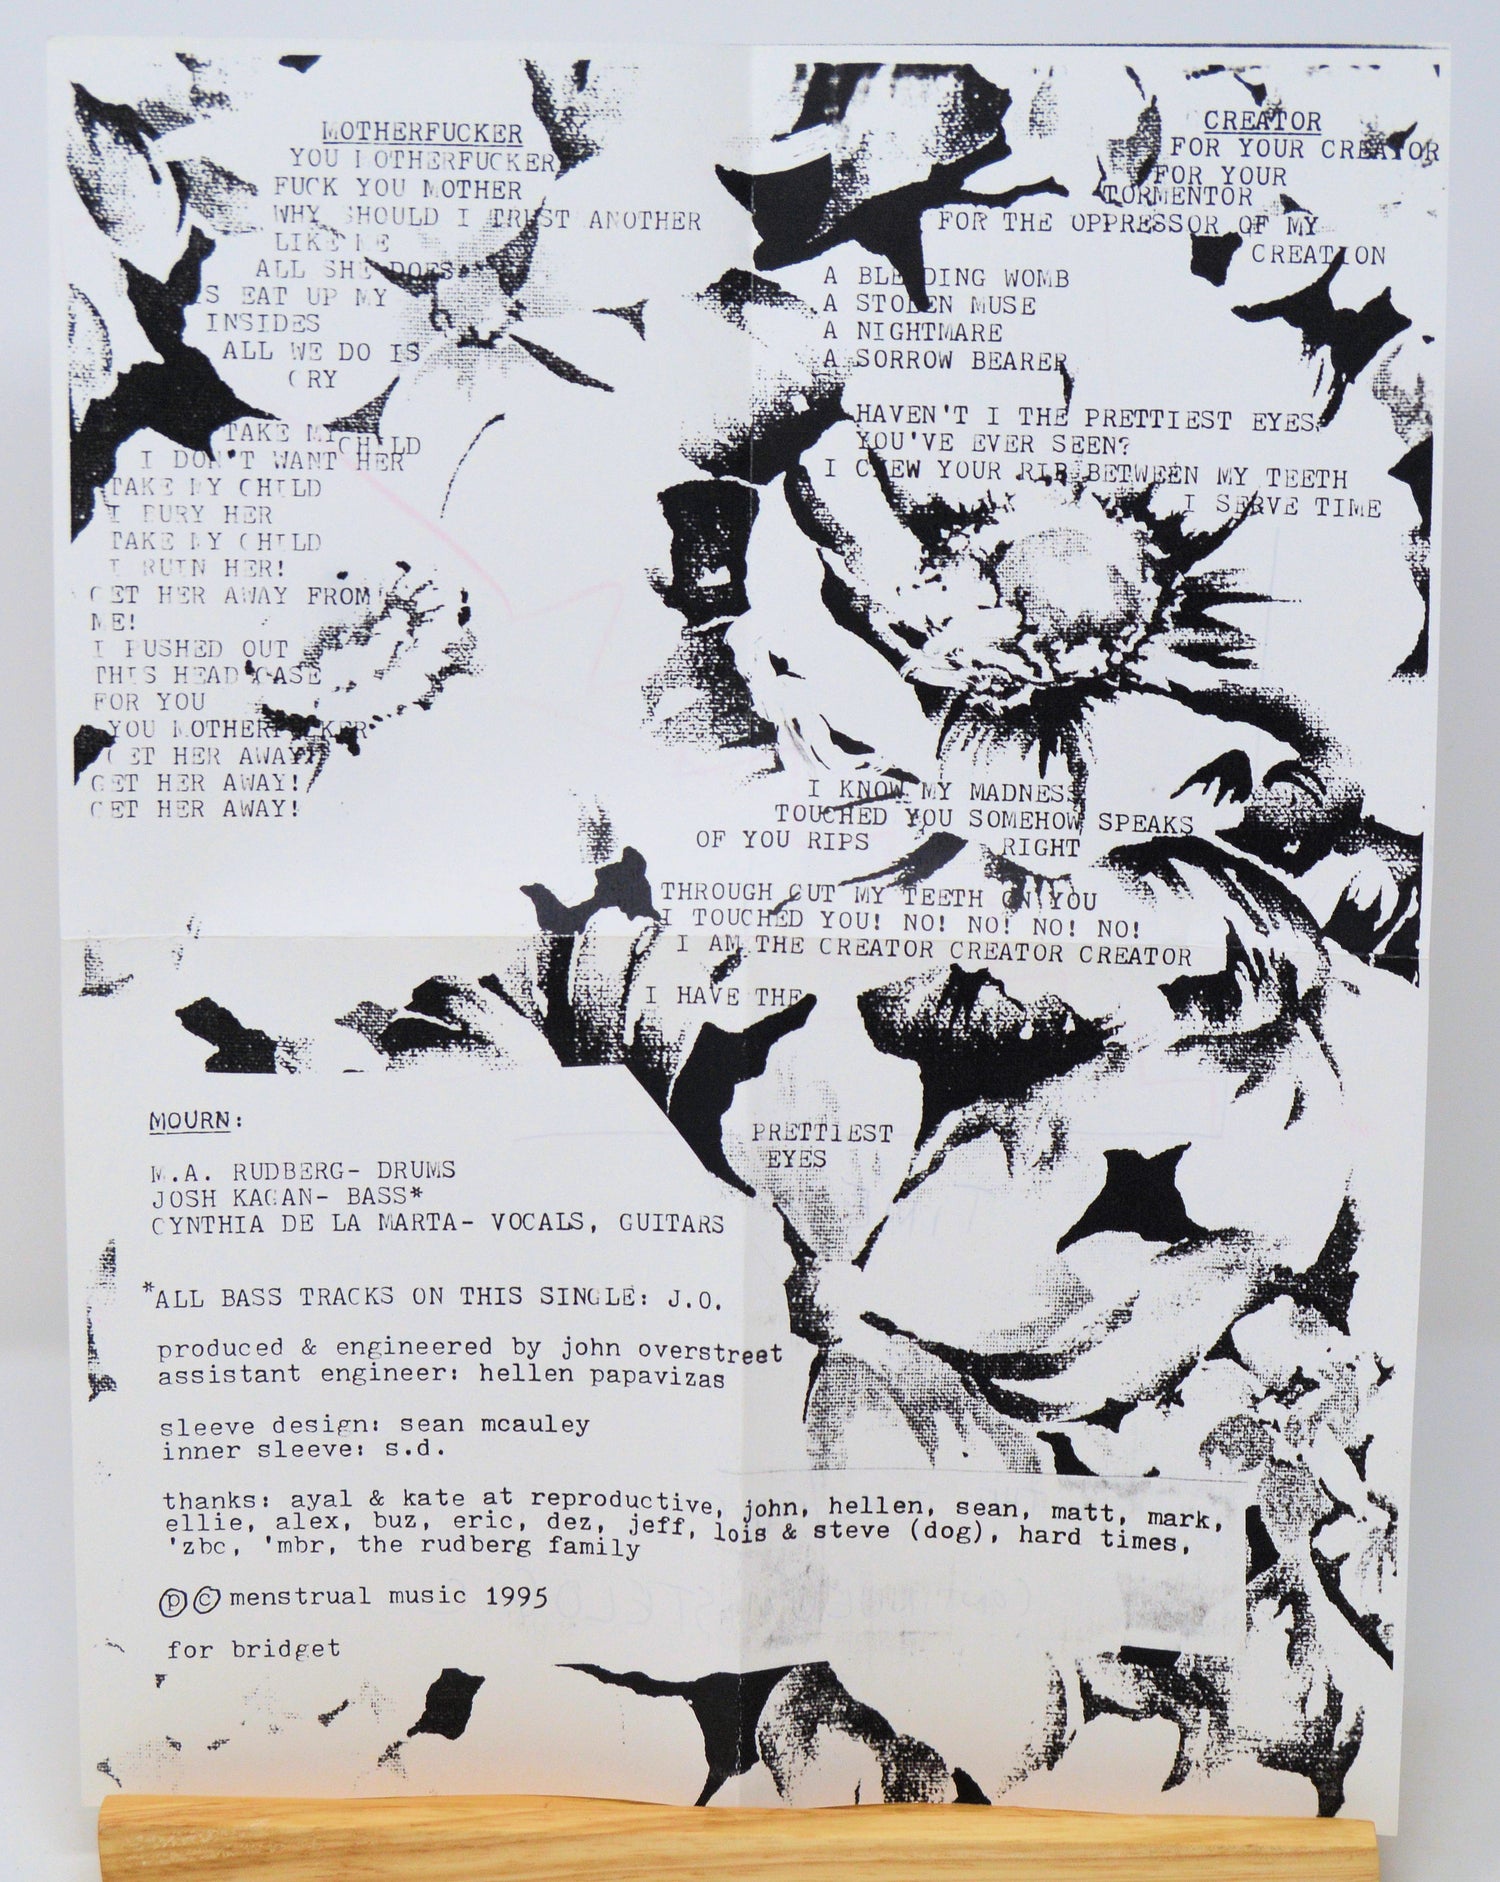 MOTHERFUCKER
YOU MOTHERFUCKER
FUCK YOU MOTHER
WHY SHOULD I TRUST ANOTHER
LIKE ME
ALL SHE DOES
IS EAT UP MY
INSIDES
ALL WE DO IS
CRY
TAKE MY CHILD
I DON'T WANT HER
TAKE MY CHILD
I BURY HER
TAKE MY CHILD
I RUIN HER!
GET HER AWAY FROM
ME!
I PUSHED OUT
THIS HEAD CASE
FOR YOU
YOU MOTHERFUCKER
GET HER AWAY!
GET HER AWAY!
GET HER AWAY!
CREATOR
FOR YOUR CREATOR
FOR YOUR
TORMENTOR
FOR THE OPPRESSOR OF MY
CREATION
A BLEEDING WOMB
A STOLEN MUSE
A NIGHTMARE
A SORROW BEARER
HAVEN'T I THE PRETTIEST EYES
YOU'VE EVER SEEN?
I CHEW YOUR RIB BETWEEN MY TEETH
I SERVE TIME
I KNOW MY MADNESS
TOUCHED YOU SOMEHOW SPEAKS
OF YOU RIPS RIGHT
THROUGH CUT MY TEETH ON YOU
I TOUCHED YOU! NO! NO! NO! NO!
I AM THE CREATOR CREATOR CREATOR
I HAVE THE
PRETTIEST
EYES
MOURN:
M.A. RUDBERG- DRUMS
JOSH KAGAN- BASS*
CYNTHIA DE LA MARTA- VOCALS, GUITARS
*ALL BASS TRACKS ON THIS SINGLE: J.O.
produced & engineered by john overstreet
assistant engineer: hellen papavizas
sleeve design: sean mcauley
inner sleeve: s.d.
thanks: ayal & kate at reproductive, john, hellen, sean, matt, mark,
ellie, alex, buz, eric, dez, jeff, lois & steve (dog), hard times,
'zbc, 'mbr, the rudberg family
Ⓟ © menstrual music 1995
for bridget